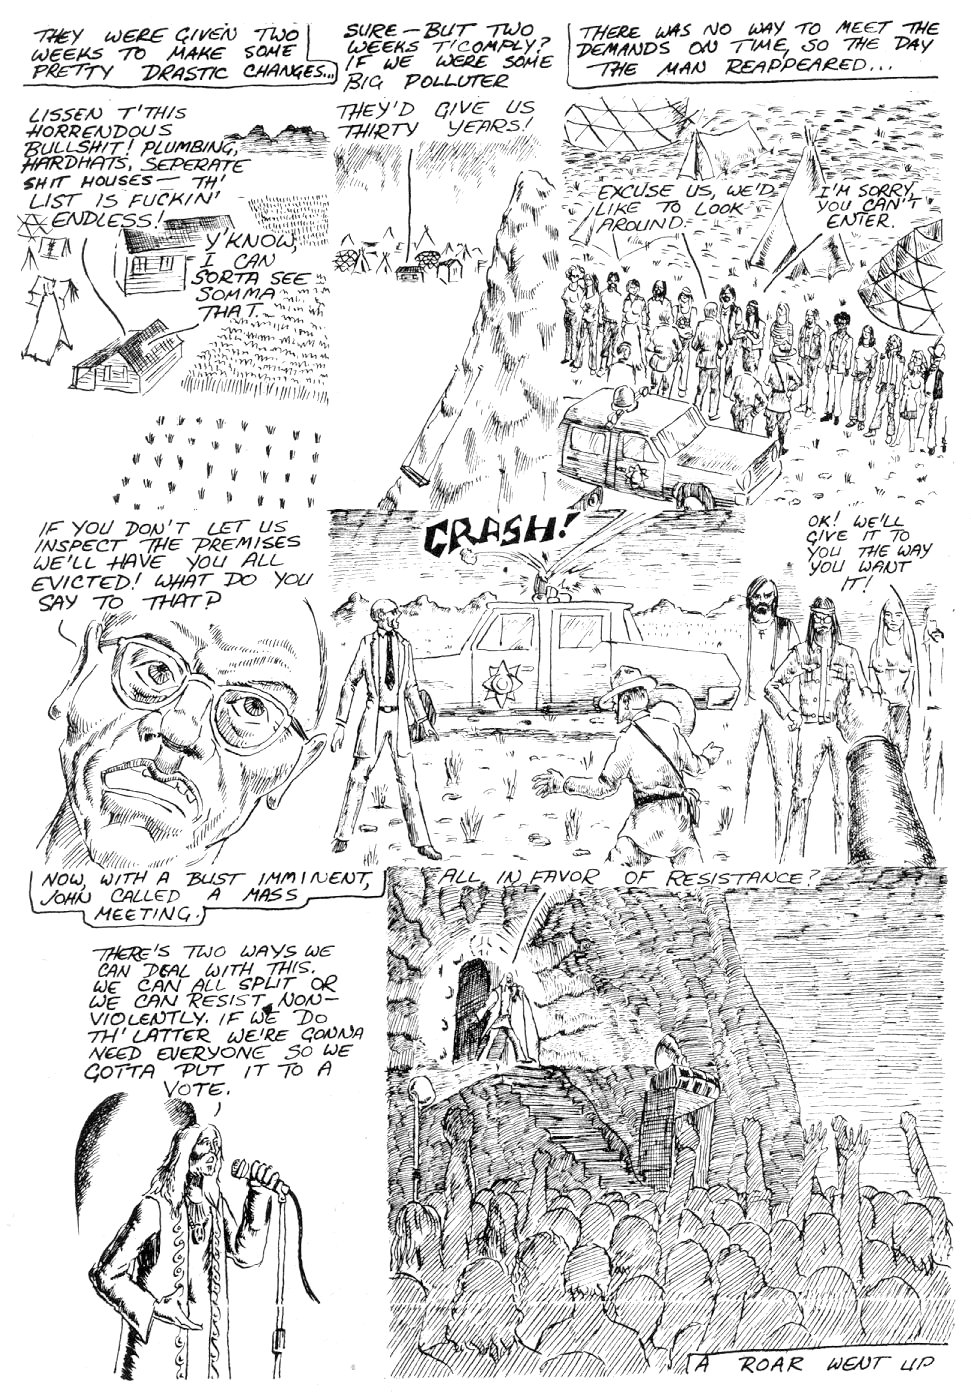 THEY WERE GIVEN TWO
WEEKS TO MAKE SOME
PRETTY DRASTIC CHANGES...
LISSEN T'THIS
HORRENDOUS
BULLSHIT! PLUMBING,
HARDHATS, SEPERATE
SHIT HOUSES— TH'
LIST IS FUCKIN'
ENDLESS!
Y'KNOW,
I CAN
SORTA SEE
SOMMA
THAT.
SURE—BUT TWO
WEEKS T'COMPLY?
IF WE WERE SOME
BIG POLLUTER
THEY'D GIVE US
THIRTY YEARS!
THERE WAS NO WAY TO MEET THE
DEMANDS ON TIME, SO THE DAY
THE MAN REAPPEARED...
EXCUSE US, WE'D
LIKE TO LOOK
AROUND.
I'M SORRY,
YOU CAN'T
ENTER.
IF YOU DON'T LET US
INSPECT THE PREMISES
WE'LL HAVE YOU ALL
EVICTED! WHAT DO YOU
SAY TO THAT?
CRASH!
OK! WE'LL
GIVE IT TO
YOU THE WAY
YOU WANT
IT!
NOW, WITH A BUST IMMINENT,
JOHN CALLED A MASS
MEETING.
THERE'S TWO WAYS WE
CAN DEAL WITH THIS.
WE CAN ALL SPLIT OR
WE CAN RESIST, NON-
VIOLENTLY. IF WE DO
TH' LATTER WE'RE GONNA
NEED EVERYONE SO WE
GOTTA PUT IT TO A
VOTE.
ALL IN FAVOR OF RESISTANCE?
A ROAR WENT UP